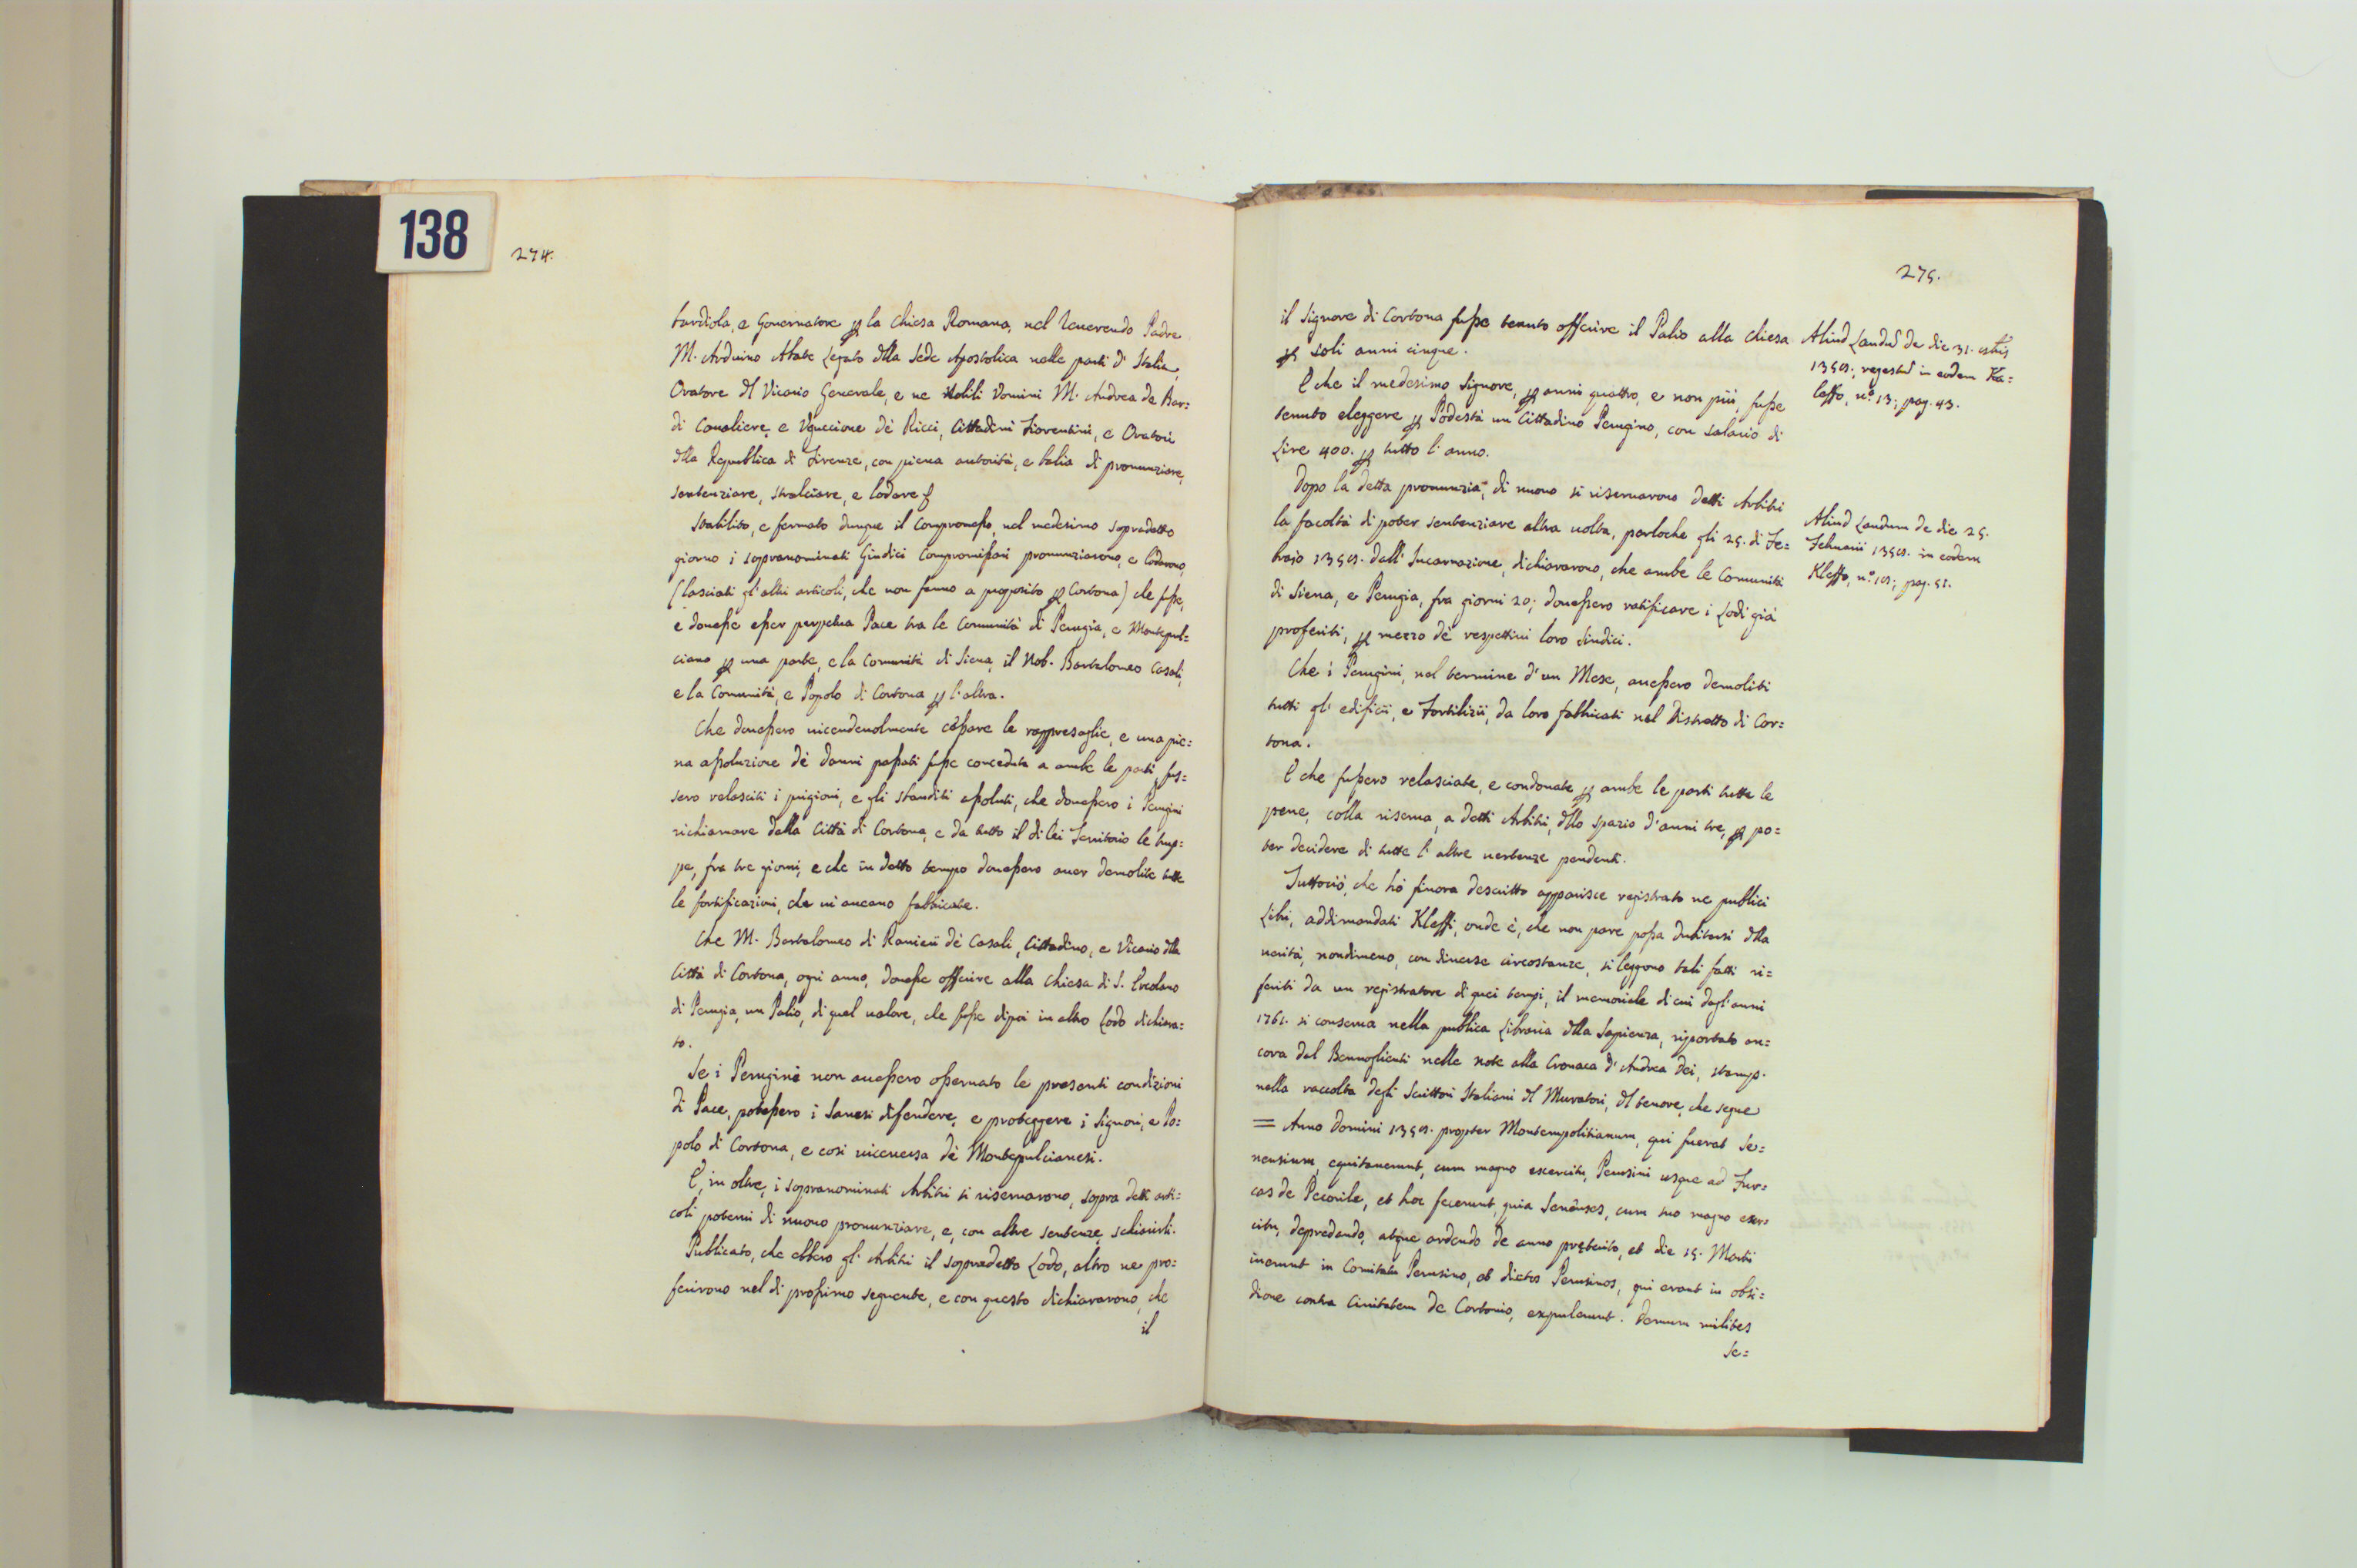 138
274.
bardiola, e Governatore p la Chiesa Romana, nel Reverendo Padre
M. Arduino Abate Legato dlla Sede Apostolica nelle parti d' Italia,
Oratore dl Vicario Generale, e ne Nobili Uomini M. Andrea de Bar=
di Cavaliere, e Uguccione dè Ricci, Cittadini Fiorentini, e Oratori
dlla Republica di Firenze, con piena autorità, e balia di pronunziare,
sentenziare, stralciare, e lodare
Stabilito, e fermato dunque il Compromesso, nel medesimo sopradetto
giorno i sopranominati Giudici Compromissari pronunziarono, e lodarono,
(lasciati gl' altri articoli, che non fanno a proposito p Cortona) che fusse,
e dovesse esser perpetua Pace tra le Comunità di Perugia, e Montepul=
ciano p una parte, e la Comunità di Siena, il Nob. Bartolomeo Casali,
e la Comunità, e Popolo di Cortona p l' altra.
Che dovessero vicendevolmente cessare le rappresaglie, e una pie=
na assoluzione dè danni passati fusse conceduta a ambe le parti, fus=
sero relasciti i prigioni, e gli sbanditi assoluti, che dovessero i Perugini
richiamare dalla Città di Cortona, e da tutto il di lei Territorio le trup=
pe, fra tre giorni, e che in detto tempo dovessero aver demolite tutte
le fortificazioni, che vi aveano fabbricate.
Che M. Bartolomeo di Ranieri dè Casali, Cittadino, e Vicario dlla
Città di Cortona, ogni anno, dovesse offerire alla Chiesa di S. Ercolano
di Perugia, un Palio, di quel valore, che fusse dipoi in altro Lodo dichiara=
to.
Se i Perugini non avessero osservato le presenti condizioni
di Pace, potessero i Sanesi difendere, e proteggere i Signori, e Po=
polo di Cortona, e così viceversa dè Montepulcianesi.
E, in oltre, i sopranominati Arbitri si riservarono, sopra detti arti=
coli potervi di nuovo pronunziare, e, con altre sentenze, schiarirli.
Publicato, che ebbero gl' Arbitri il sopradetto Lodo, altro ne pro=
ferirono nel dì prossimo seguente, e con questo dichiararono, che
il
275.
il Signore di Cortona fusse tenuto offerire il Palio alla Chiesa
p soli anni cinque.
E che il medesimo Signore, p anni quattro, e non più, fusse
tenuto eleggere p Podestà un Cittadino Perugino, con salario di
Lire 400. p tutto l' anno.
Dopo la detta pronunzia, di nuovo si riservarono detti Arbitri
la facoltà di poter sentenziare altra volta, perloche gli 25. di Fe=
brajo 1358. dall' Incarnazione, dichiararono, che ambe le Comunità
di Siena, e Perugia, fra giorni 20; dovessero ratificare i Lodi già
proferiti, p mezzo dè respettivi loro Sindici.
Che i Perugini, nel termine d' un Mese, avessero demoliti
tutti gl' edificii, e Fortilizii, da loro fabbricati nel Distretto di Cor=
tona.
E che fussero relasciate, e condonate p ambe le parti tutte le
pene, colla riserva, a detti Arbitri, dllo spazio d' anni tre, p po=
ter decidere di tutte l' altre vertenze pendenti.
Tuttociò, che hò finora descritto apparisce registrato ne publici
Libri, addimandati Kleffi, onde è, che non pare possa dubitarsi dlla
verità, nondimeno, con diverse circostanze, si leggono tali fatti ri=
feriti da un registratore di quei tempi, il memoriale di cui degl' anni
1361. si conserva nella publica Libraria dlla Sapienza, riportato an=
cora dal Benvoglienti nelle note alla Cronaca d' Andrea Dei, stamp.
nella raccolta degli Scrittori Italiani dl Muratori, dl tenore, che segue
= Anno Domini 1358. propter Montempolitianum, qui fuerat Se=
nensium, equitaverunt, cum magno exercitu, Perusini usque ad Fur=
cas de Pecorile, et hoc fecerunt, quia Senenses, cum suo magno exer=
citu, depredando, atque ardendo de anno preterito, et die 15. Martii
iverunt in Comitatu Perusino, et dictos Perusinos, qui erant in obsi=
dione contra Civitatem de Cortonio, expulerunt. Demum milites
Se=
Aliud Laudu de die 31. octbris
1358., regestu in eodem Ka=
leffo, n.º 13., pag. 43.
Aliud Laudum de die 25.
Februarii 1358. in eodem
Kleffo, n.º 18., pag. 51.